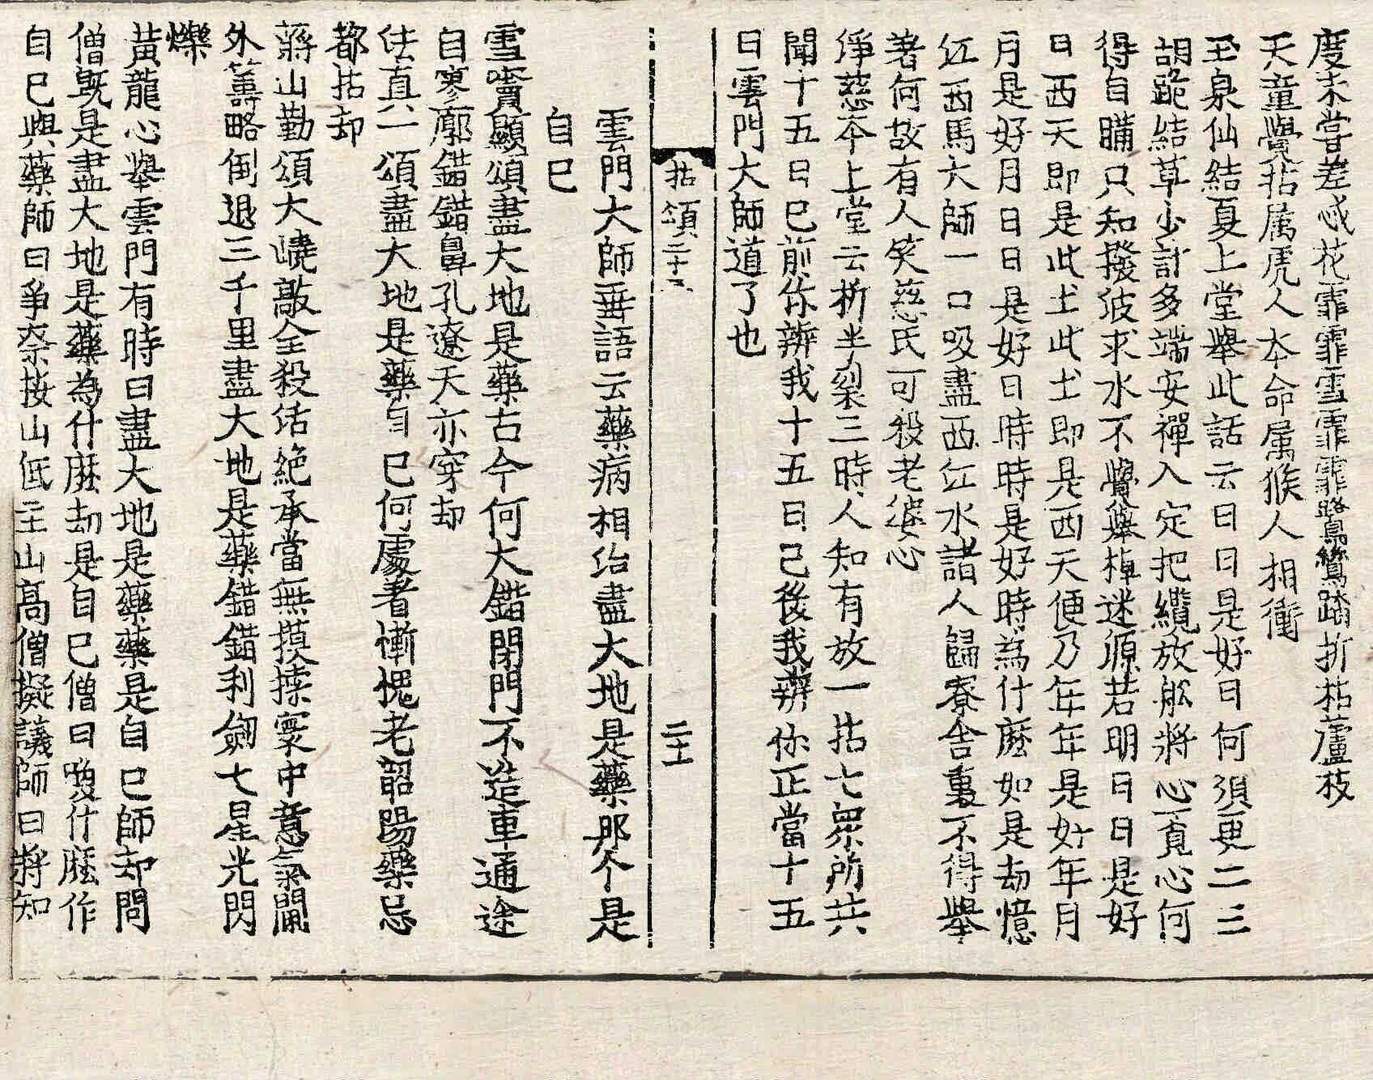 度未嘗差忒花霏霏雪霏霏鷺鷥踏折枯蘆枝
天童覺拈属虎人本命属猴人相衝
玉泉仙結夏上堂舉此話云日日是好日何須更二三
胡跪結草少計多端安禪入定把纜放舩將心覔心何
得自瞞只知撥波求水不覺舉棹迷源若明日日是好
日西天即是此土此土即是西天便乃年年是好年月
月是好月日日是好日時時是好時為什麽如是却憶
江西馬大師一口吸盡西江水諸人歸寮舎裏不得舉
著何故有人笑慈氏可殺老婆心
淨慈本上堂云折半裂三時人知有放一拈七衆所共
聞十五日已前你辨我十五日已後我辨你正當十五
日雲門大師道了也
拈頌二十
二十
雲門大師垂語云藥病相治盡大地是藥那个是
自己
雪竇顯頌盡大地是藥古今何大錯閉門不造車通途
自寥廓錯錯鼻孔遼天亦穿却
佉真一頌盡大地是藥自己何處著慚愧老韶陽藥忌
都拈却
蔣山勤頌大嶢敲全殺活絶承當無摸𢱢寰中意氣閫
外籌略倒退三千里盡大地是藥錯錯利劒七星光閃
爍
黃龍心舉雲門有時曰盡大地是藥藥是自己師却問
僧旣是盡大地是藥為什麽却是自己僧曰喚什麽作
自己與藥師曰爭柰按山低主山高僧擬議師曰將知